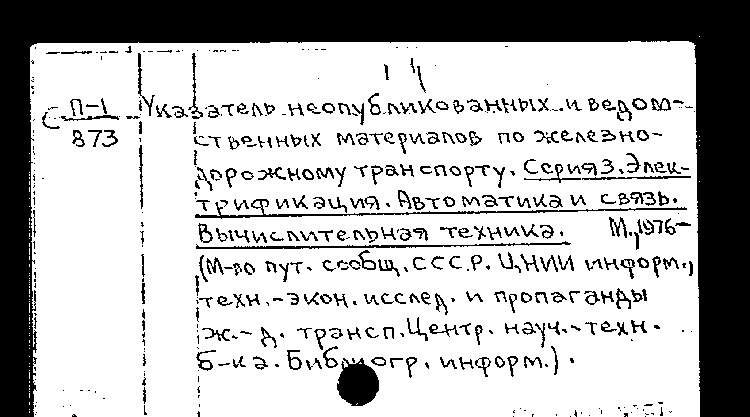 С П-1
873
Указатель неопубликованных и ведом-
ственных материалов по железно-
дорожному транспорту. Серия 3. Элек-
трификация. Автоматика и связь.
Вычислительная техника. М., 1976-
(М-во пут. сообщ. СССР. ЦНИИ информ.,
техн.-экон. исслед. и пропаганды
ж.-д. трансп. Центр. науч.-техн.
б-ка. Библиогр. информ.).